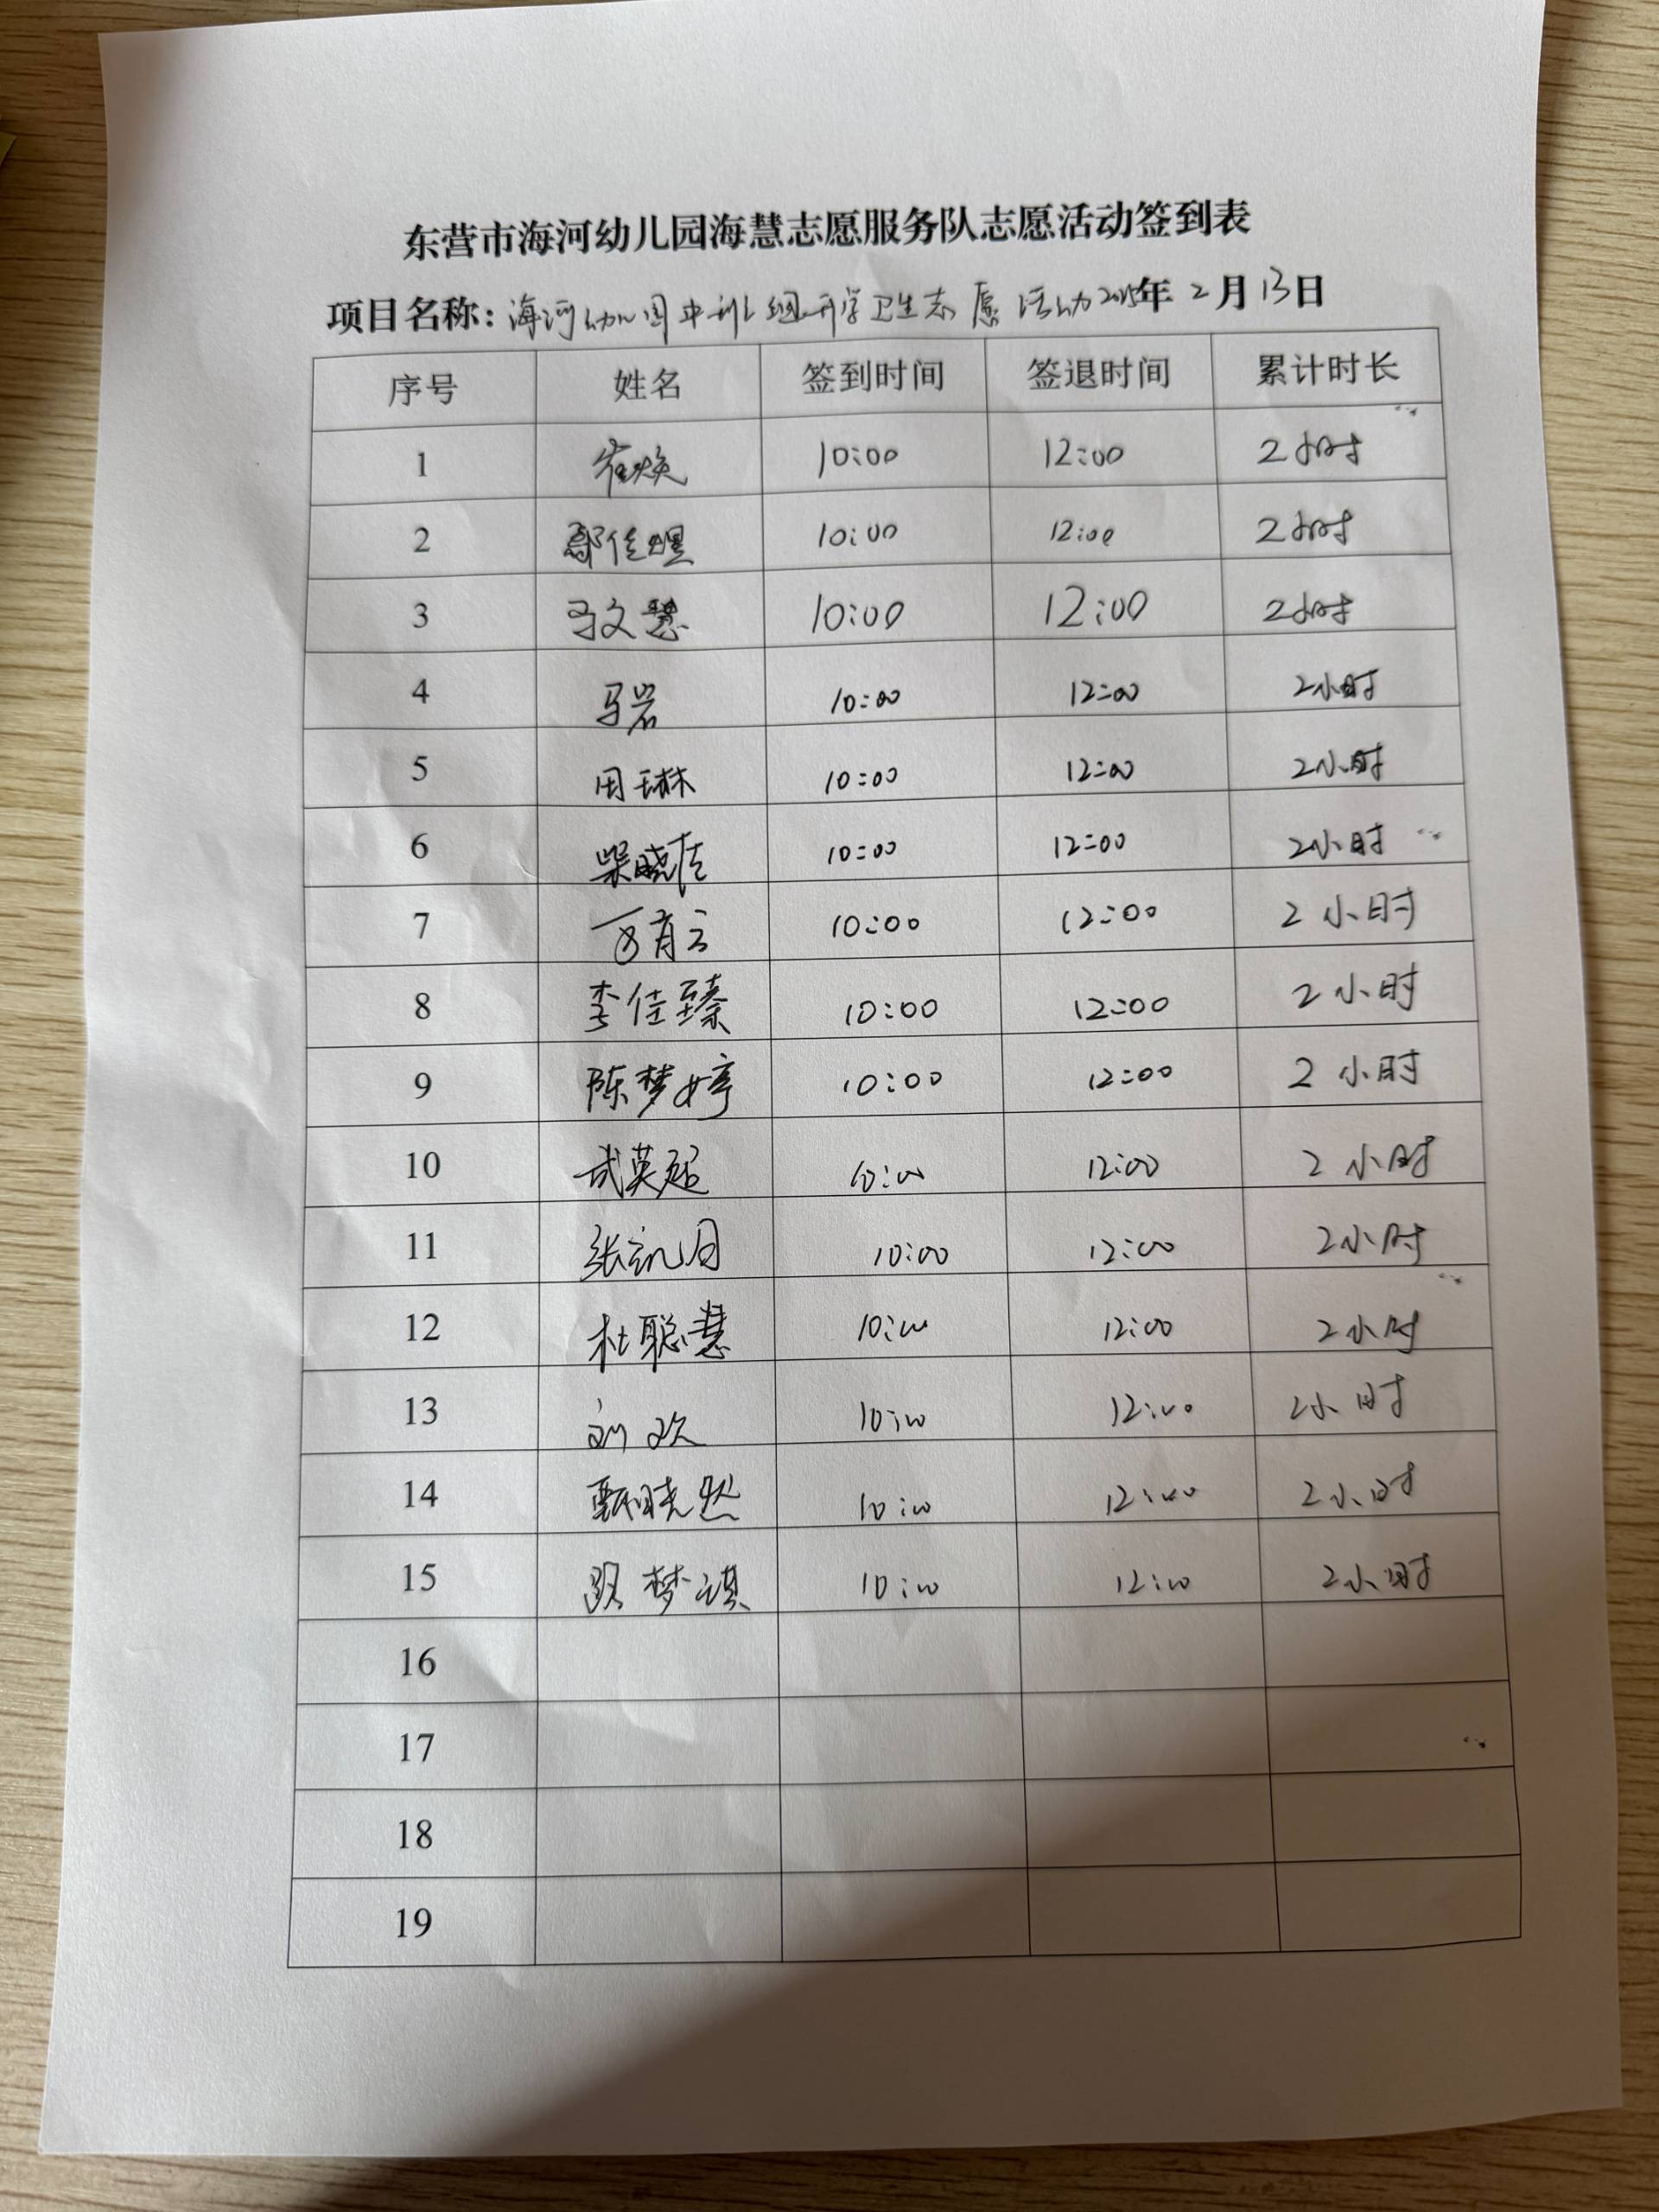 东营市海河幼儿园海慧志愿服务队志愿活动签到表
项目名称：海河幼儿园中班组开学卫生志愿活动2025年2月13日
序号 姓名 签到时间 签退时间 累计时长
1 崔焕 10:00 12:00 2小时
2 郭佳煜 10:00 12:00 2小时
3 马文慧 10:00 12:00 2小时
4 马岩 10:00 12:00 2小时
5 田琳 10:00 12:00 2小时
6 梁晓佳 10:00 12:00 2小时
7 10:00 12:00 2小时
8 李佳臻 10:00 12:00 2小时
9 陈梦婷 10:00 12:00 2小时
10 武英超 10:00 12:00 2小时
11 张凯月 10:00 12:00 2小时
12 杜聪慧 10:00 12:00 2小时
13 刘欢 10:00 12:00 2小时
14 甄晓然 10:00 12:00 2小时
15 梦琪 10:00 12:00 2小时
16
17
18
19